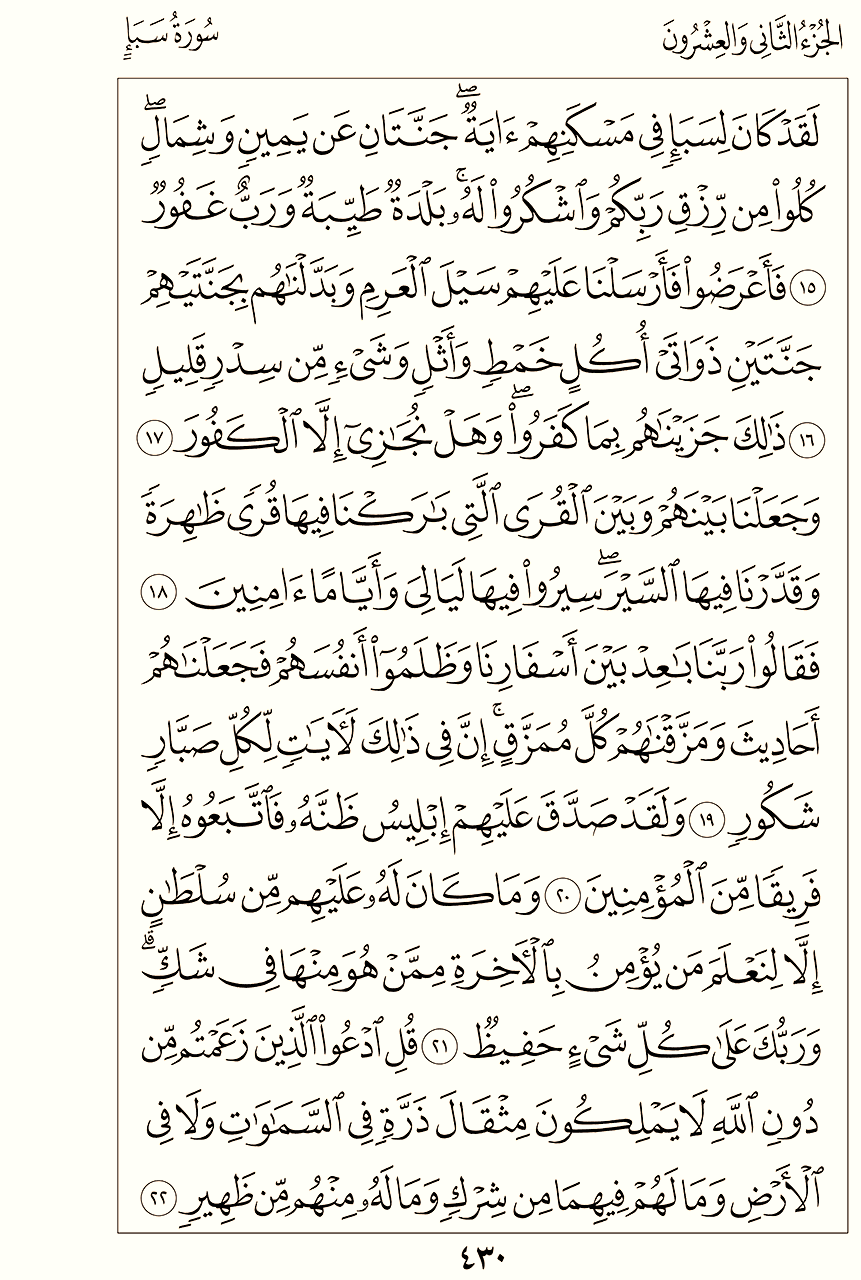 الجُزْءُ الثَّانِي وَالعِشْرُونَ
سُورَةُ سَبَإٍ
لَقَدْ كَانَ لِسَبَإٍ فِى مَسْكَنِهِمْ ءَايَةٌ ۖ جَنَّتَانِ عَن يَمِينٍ وَشِمَالٍ ۖ
كُلُوا۟ مِن رِّزْقِ رَبِّكُمْ وَٱشْكُرُوا۟ لَهُۥ ۚ بَلْدَةٌ طَيِّبَةٌ وَرَبٌّ غَفُورٌ
١٥ فَأَعْرَضُوا۟ فَأَرْسَلْنَا عَلَيْهِمْ سَيْلَ ٱلْعَرِمِ وَبَدَّلْنَٰهُم بِجَنَّتَيْهِمْ
جَنَّتَيْنِ ذَوَاتَىْ أُكُلٍ خَمْطٍ وَأَثْلٍ وَشَىْءٍ مِّن سِدْرٍ قَلِيلٍ
١٦ ذَٰلِكَ جَزَيْنَٰهُم بِمَا كَفَرُوا۟ ۖ وَهَلْ نُجَٰزِىٓ إِلَّا ٱلْكَفُورَ ١٧
وَجَعَلْنَا بَيْنَهُمْ وَبَيْنَ ٱلْقُرَى ٱلَّتِى بَٰرَكْنَا فِيهَا قُرًى ظَٰهِرَةً
وَقَدَّرْنَا فِيهَا ٱلسَّيْرَ ۖ سِيرُوا۟ فِيهَا لَيَالِىَ وَأَيَّامًا ءَامِنِينَ ١٨
فَقَالُوا۟ رَبَّنَا بَٰعِدْ بَيْنَ أَسْفَارِنَا وَظَلَمُوٓا۟ أَنفُسَهُمْ فَجَعَلْنَٰهُمْ
أَحَادِيثَ وَمَزَّقْنَٰهُمْ كُلَّ مُمَزَّقٍ ۚ إِنَّ فِى ذَٰلِكَ لَـَٔايَٰتٍ لِّكُلِّ صَبَّارٍ
شَكُورٍ ١٩ وَلَقَدْ صَدَّقَ عَلَيْهِمْ إِبْلِيسُ ظَنَّهُۥ فَٱتَّبَعُوهُ إِلَّا
فَرِيقًا مِّنَ ٱلْمُؤْمِنِينَ ٢٠ وَمَا كَانَ لَهُۥ عَلَيْهِم مِّن سُلْطَٰنٍ
إِلَّا لِنَعْلَمَ مَن يُؤْمِنُ بِٱلْـَٔاخِرَةِ مِمَّنْ هُوَ مِنْهَا فِى شَكٍّ ۗ
وَرَبُّكَ عَلَىٰ كُلِّ شَىْءٍ حَفِيظٌ ٢١ قُلِ ٱدْعُوا۟ ٱلَّذِينَ زَعَمْتُم مِّن
دُونِ ٱللَّهِ لَا يَمْلِكُونَ مِثْقَالَ ذَرَّةٍ فِى ٱلسَّمَٰوَٰتِ وَلَا فِى
ٱلْأَرْضِ وَمَا لَهُمْ فِيهِمَا مِن شِرْكٍ وَمَا لَهُۥ مِنْهُم مِّن ظَهِيرٍ ٢٢
٤٣٠